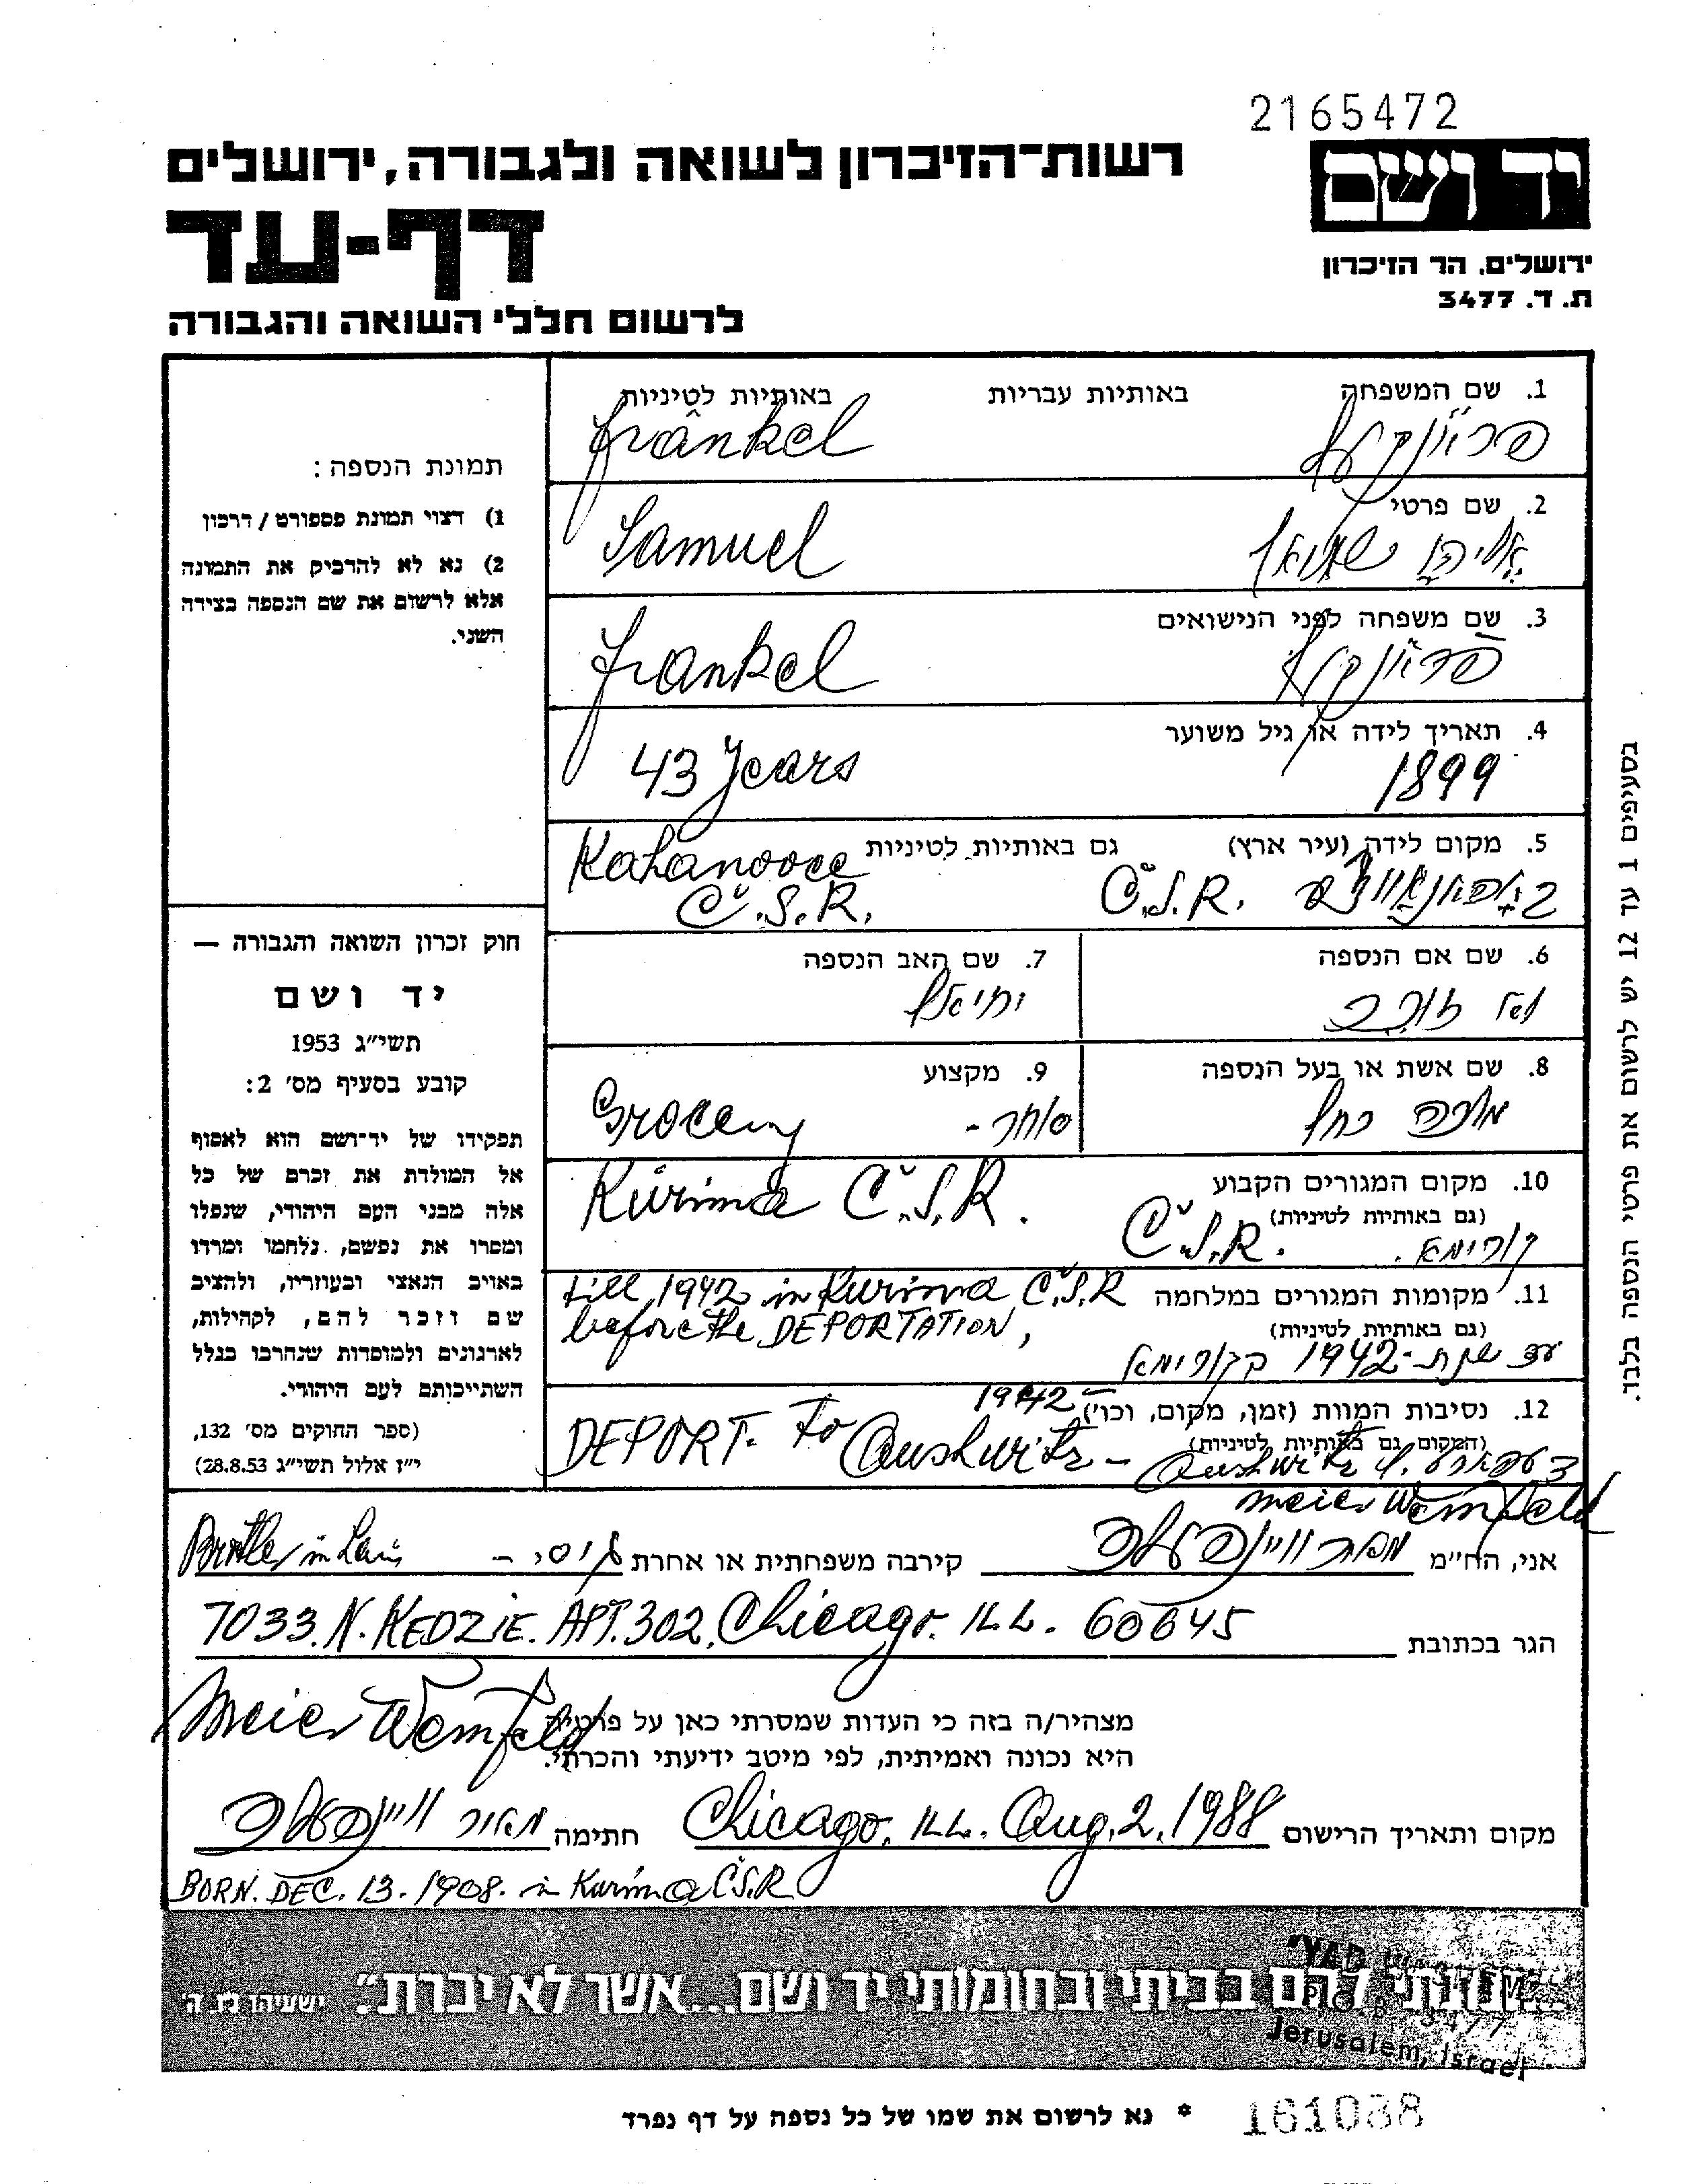 2165472
יד ושם
רשות־הזיכרון לשואה ולגבורה, ירושלים
דף-עד
ירושלים, הר הזיכרון
ת. ד. 3477
לרשום חללי השואה והגבורה
תמונת הנספה:
1) רצוי תמונת פספורט / דרכון
2) נא לא להדביק את התמונה
אלא לרשום את שם הנספה בצידה
השני.
חוק זכרון השואה והגבורה —
יד ושם
תשי״ג 1953
קובע בסעיף מס׳ 2:
תפקידו של יד־ושם הוא לאסוף
אל המולדת את זכרם של כל
אלה מבני העם היהודי, שנפלו
ומסרו את נפשם, נלחמו ומרדו
באויב הנאצי ובעוזריו, ולהציב
שם וזכר להם, לקהילות,
לארגונים ולמוסדות שנחרבו בגלל
השתייכותם לעם היהודי.
(ספר החוקים מס׳ 132,
י״ז אלול תשי״ג 28.8.53)
1. שם המשפחה באותיות עבריות באותיות לטיניות
פראנקעל Frankel
2. שם פרטי
אליהו שמואל Samuel
3. שם משפחה לפני הנישואים
פראנקעל Frankel
4. תאריך לידה או גיל משוער
1899 43 Years
5. מקום לידה (עיר ארץ) גם באותיות לטיניות
Č.S.R. Kahanovce
Č.S.R.
6. שם אם הנספה
7. שם האב הנספה
יחיאל
8. שם אשת או בעל הנספה
מלכה רחל
9. מקצוע
סוחר - Grocery
10. מקום המגורים הקבוע
(גם באותיות לטיניות)
קורימא. Č.S.R. Kurima Č.S.R.
11. מקומות המגורים במלחמה
(גם באותיות לטיניות)
till 1942 in Kurima Č.S.R
before the DEPORTATION,
עד שנת - 1942 בקורימא
12. נסיבות המוות (זמן, מקום, וכו׳) 1942 -
(המקום גם באותיות לטיניות)
DEPORT. to Aushwitz -
Aushwitz
Meier Weinfeld
אני, הח״מ מאיר וויינפעלד קירבה משפחתית או אחרת גיסי - Brother in Law
הגר בכתובת 7033. N. KEDZIE. APT. 302, Chicago. ILL. 60645
מצהיר/ה בזה כי העדות שמסרתי כאן על פרטיה
היא נכונה ואמיתית, לפי מיטב ידיעתי והכרתי.
Meier Weinfeld
מקום ותאריך הרישום Chicago, ILL. Aug. 2. 1988 חתימה מאיר וויינפעלד
BORN. DEC. 13. 1908. in Kurima Č.S.R
״...ונתתי להם בביתי ובחומותי יד ושם...אשר לא יכרת״. ישעיהו נו, ה׳
"YAD
P.O.B. 3477
Jerusalem, Israel
* נא לרשום את שמו של כל נספה על דף נפרד
161038
בסעיפים 1 עד 12 יש לרשום את פרטי הנספה בלבד.